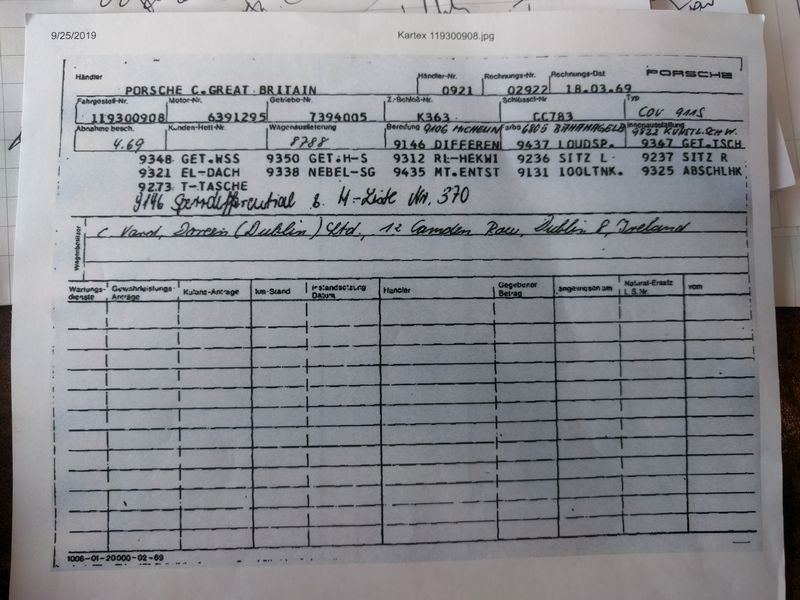 9/25/2019 Kartex 119300908.jpg
Händler Händler-Nr. Rechnungs-Nr. Rechnungs-Dat PORSCHE
PORSCHE C.GREAT BRITAIN 0921 02922 18.03.69
Fahrgestell-Nr. Motor-Nr. Getriebe-Nr. Z.-Schloß-Nr. Schlüssel-Nr. Typ
119300908 6391295 7394005 K363 CC783 COU 911S
Abnahme besch. Kunden-Heft-Nr. Wagenauslieferung Bereifung 9106 MICHELIN Farbe 6805 BAHAMAGELB Innenausstattung
4.69 8788 9146 DIFFEREN 9437 LOUDSP. 9367 GET.TSCH
9348 GET.WSS 9350 GET.H-S 9312 RL-HEKWI 9236 SITZ L 9237 SITZ R
9321 EL-DACH 9338 NEBEL-SG 9435 MT.ENTST 9131 100LTNK. 9325 ABSCHLHK
9273 T-TASCHE
Sperrdifferential M-Liste Nr. 370
Wagenbesitzer
(Dublin) Ltd., 12 Camden Row, Dublin 8, Ireland
Wartungs-dienste Gewährleistungs-Anträge Kulanz-Anträge km-Stand Instandsetzung Datum Händler Gegebener Betrag angewiesen am Natural-Ersatz L.S.Nr. vom
1006-01-20000-02-69